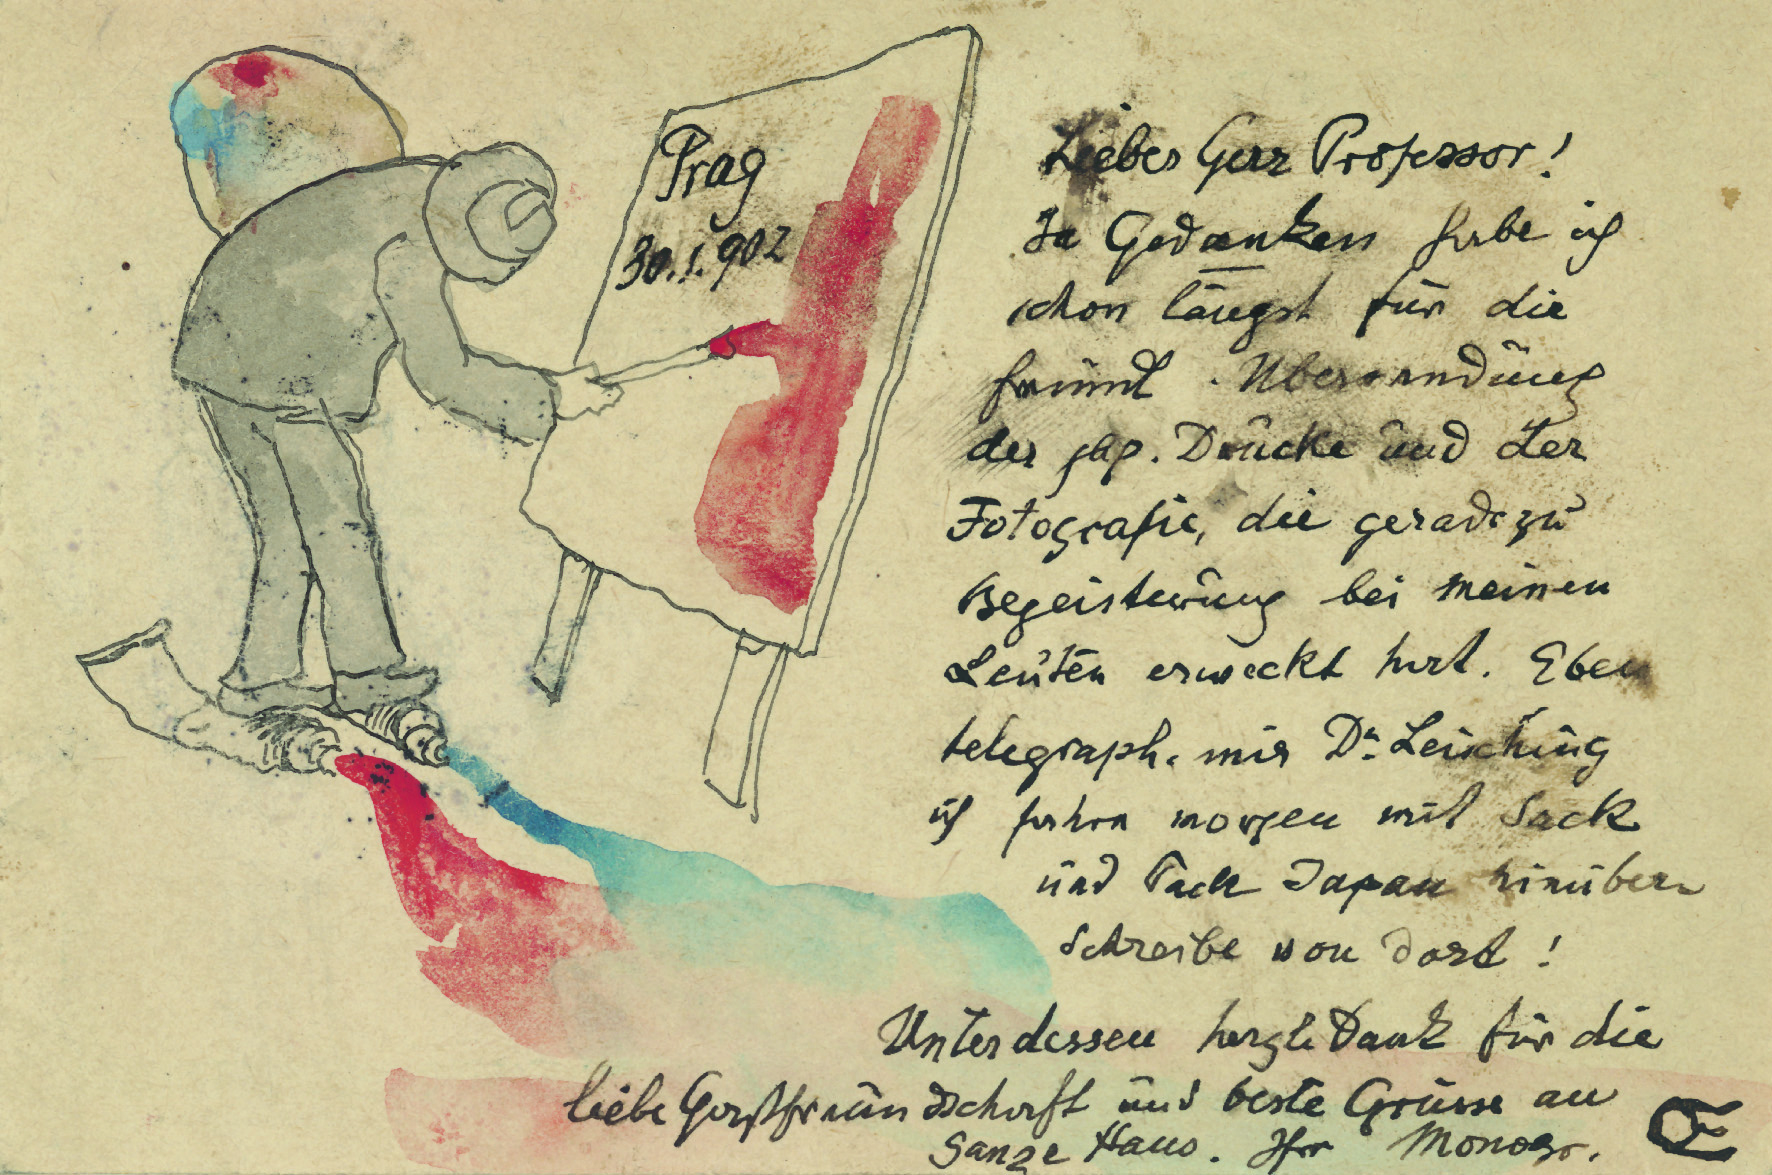 Prag
30.1.902
Lieber Herr Professor!
In Gedanken habe ich
schon längst für die
freundl. Übersendung
der jap. Drucke und der
Fotografie, die geradezu
Begeisterung bei meinen
Leuten erweckt hat. Eben
telegraph. mir Dr. Leisching
ich fahre morgen mit Sack
und Pack Japan hinüber
schreibe von dort!
Unterdessen herzl. Dank für die
liebe Gastfreundschaft und beste Grüsse an
Ganze Haus. Ihr